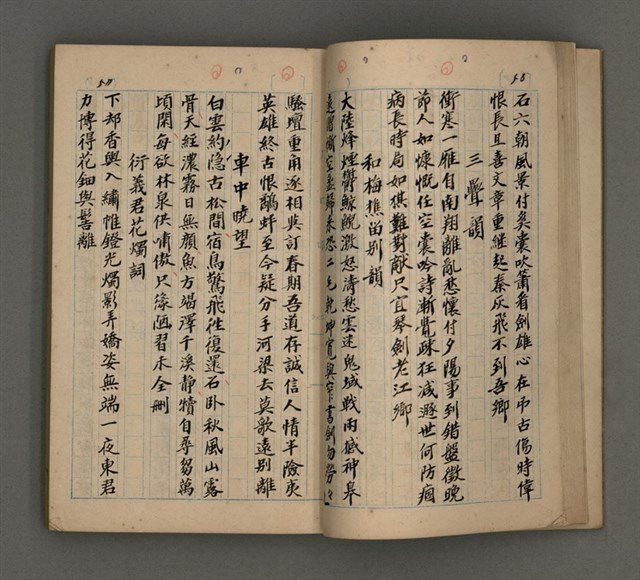 56
石六朝風景付奚囊吹簫看劍雄心在弔古傷時偉
恨長且喜文章重繼起秦灰飛不到吾鄉
三疊韻
衝寒一雁自南翔離亂愁懷付夕陽事到錯盤徵晚
節人如慷慨任空囊吟詩漸覺疎狂減避世何防痼
病長時局如棋難對敵尺宜琴劍老江鄉
和梅樵留別韻
大陸烽煙鬱鯨鯢激怒濤愁雲迷鬼域戰雨撼神皋
57
騷壇重角逐相與訂春期吾道存誠信人情半險夷
英雄終古恨鷸蚌至今疑分手河梁去莫歌遠別離
車中曉望
白雲約隱古松間宿鳥驚飛往復還石臥秋風山露
骨天經濃霧日無顏魚方竭澤千溪靜犢自尋芻萬
頃閑每欲林泉供嘯傲尺緣陋習未全刪
衍義君花燭詞
下却香輿入繡帷鐙光燭影弄嬌姿無端一夜東君
力博得花鈿與髻離